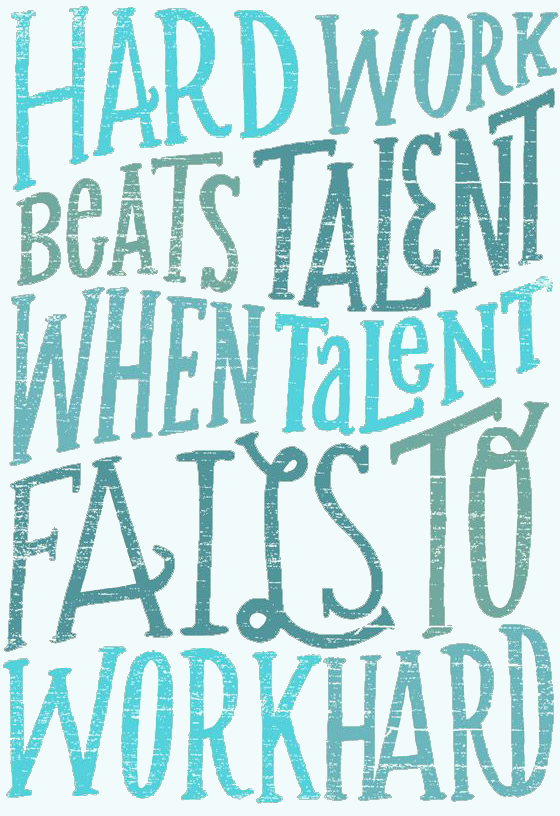 HARD WORK
BeATS TALENT
WHEN TaLeNT
FAILS TO
WORK HARD